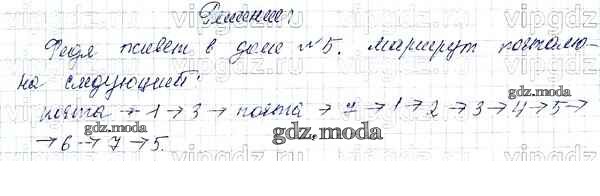 Решение:
Федя живет в доме №5. Маршрут почтальо-
на следующий:
почта → 1 → 3 → почта → 7 → 1 → 2 → 3 → 4 → 5 →
→ 6 → 7 → 5.
gdz.moda
gdz.moda
gdz.moda
gdz.moda